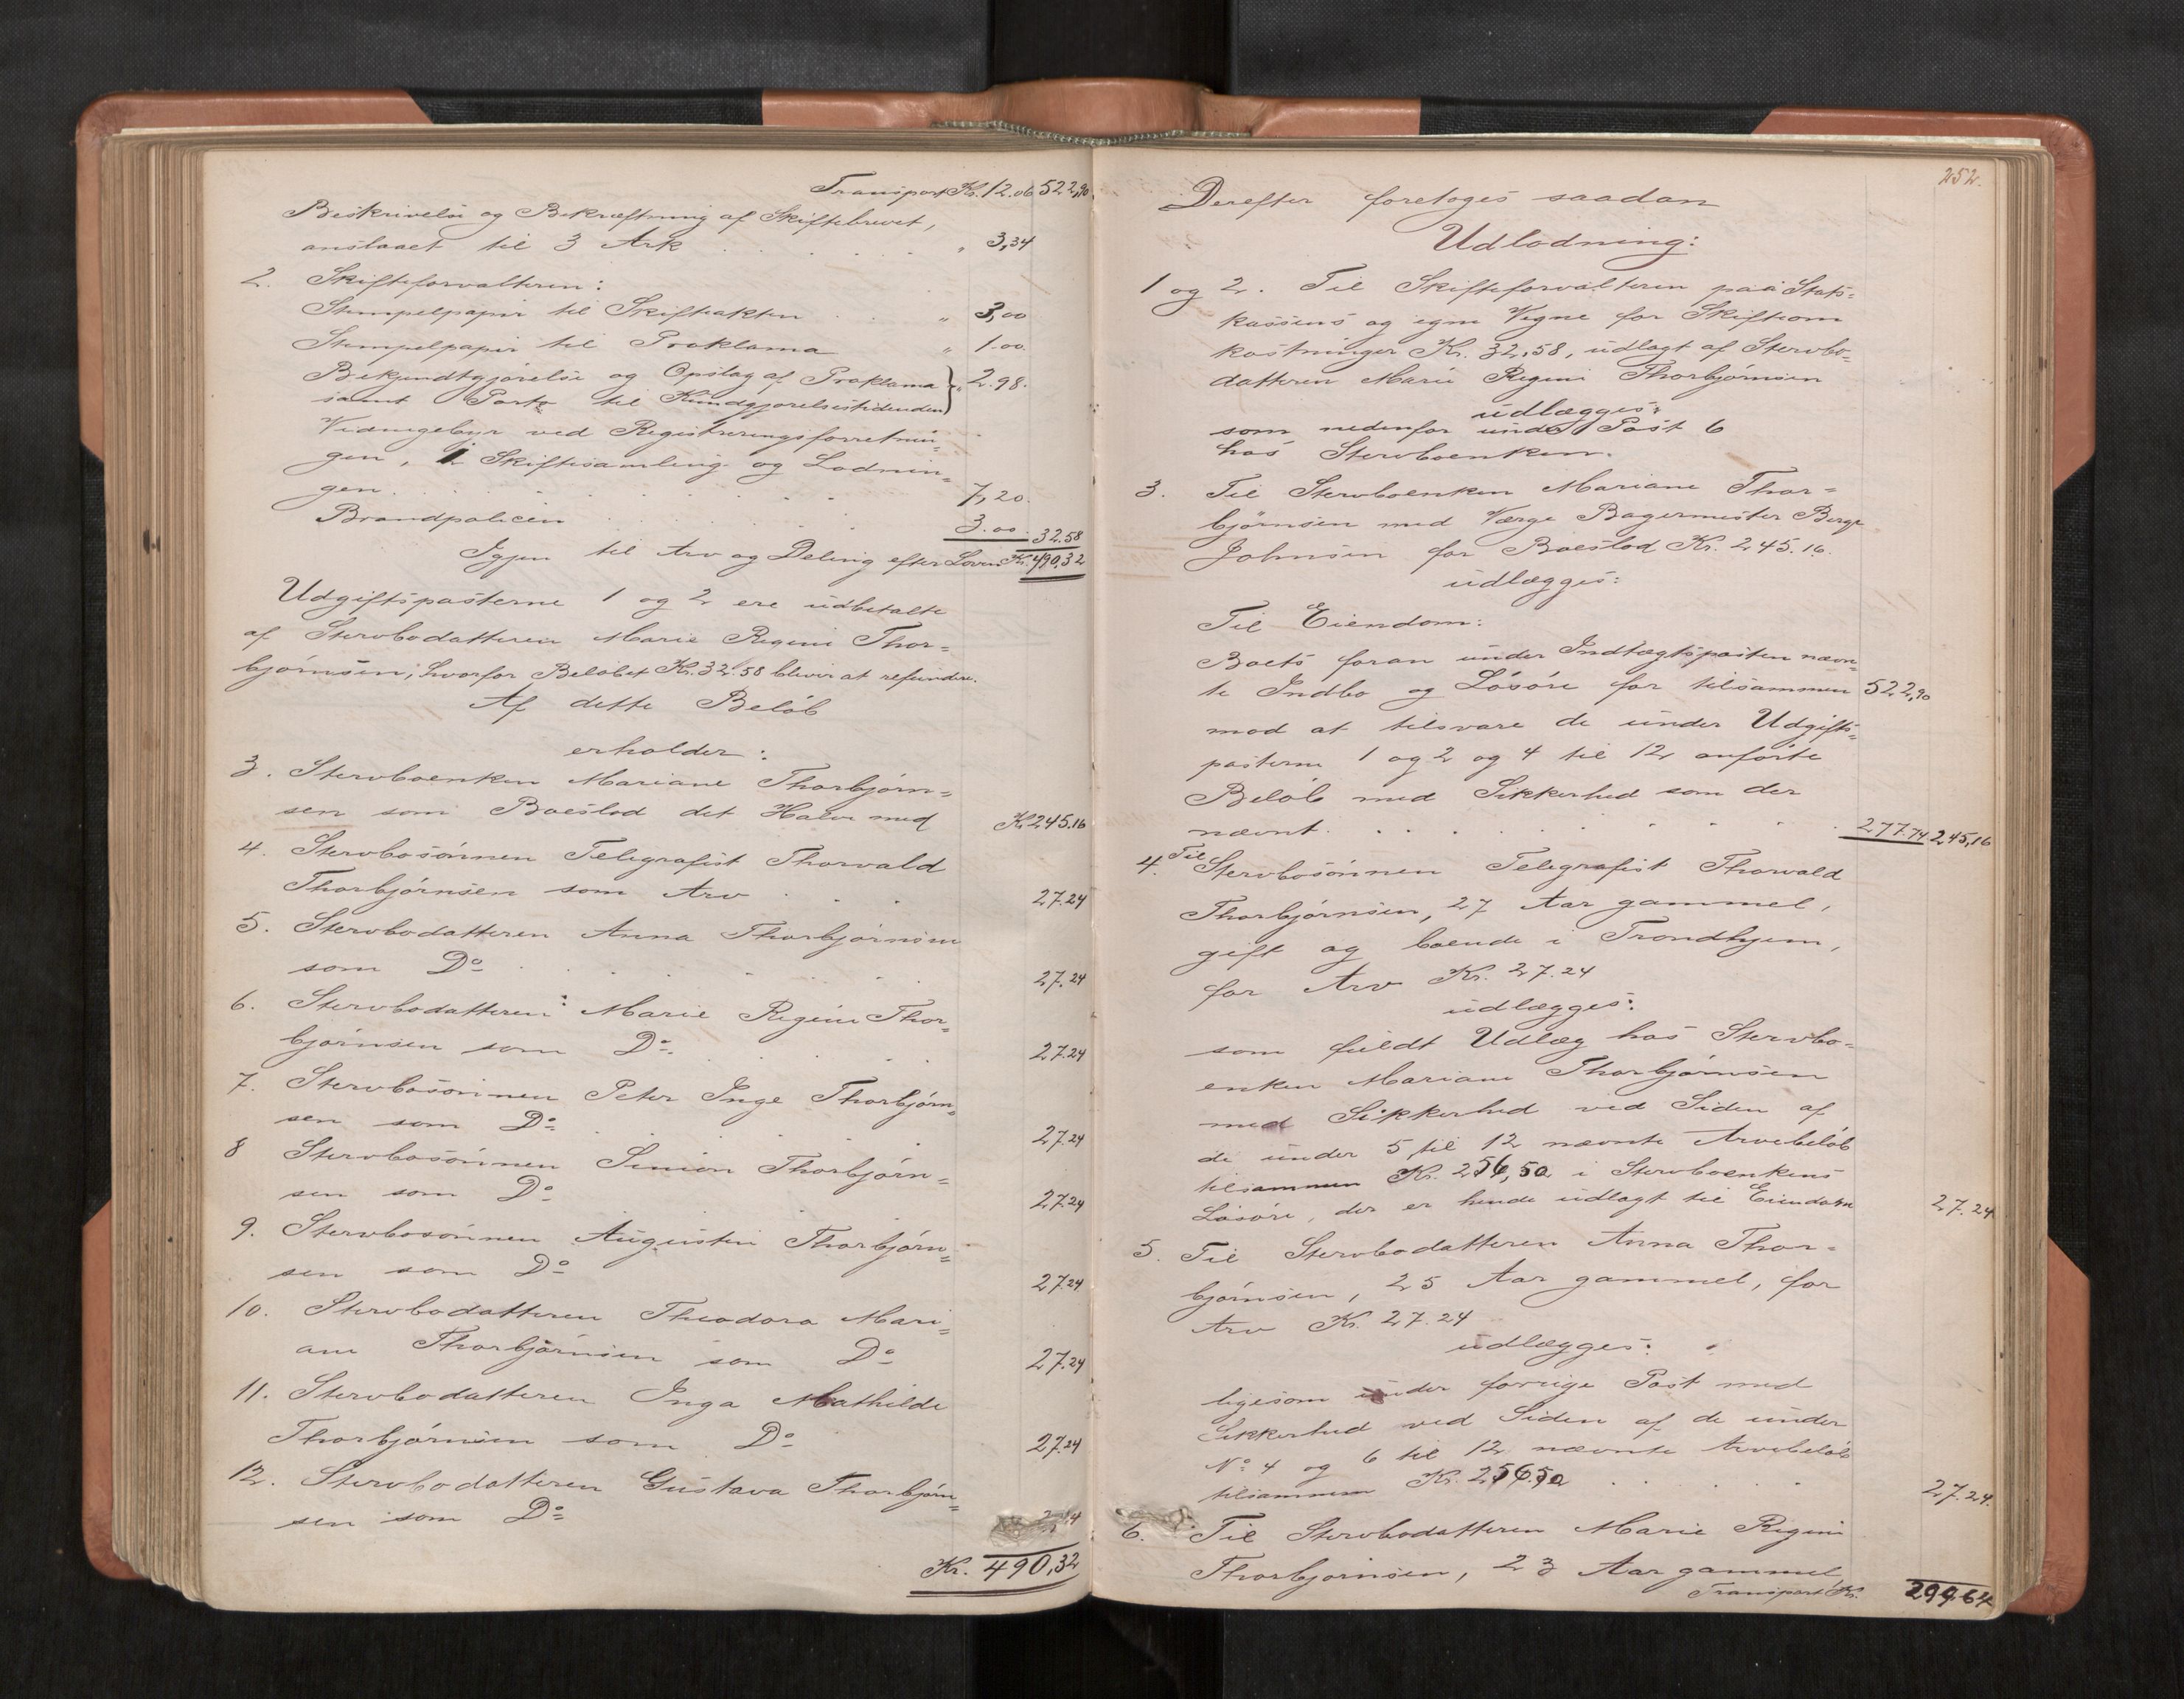 Transport Kr. 12.06 522,90
Beskrivelse og Bekræftning af Skiftebrevet,
anslaaet til 3 Ark . . . . . . " 3,34
2. Skifteforvalteren:
Stempelpapir til Skifteakten . . " 3,00
Stempelpapir til Proklama " 1.00.
Bekjendtgjørelse og Opslag af Proklama } " 2.98.
samt Porto til Kundgjørelsestidenden
Vidnegebyr ved Registreringsforretnin=
gen, 1 Skiftesamling og Lodnin=
gen. . . . . . . . 7,20.
Brandpolicen . . . . . . 3.00. 32.58
Igjen til Arv og Deling efter Loven Kr. 490,32
Udgiftsposterne 1 og 2 ere udbetalte
af Stervbodatteren Marie Regine Thor=
bjørnsen, hvorfor Beløbet Kr. 32.58 bliver at refundere.
Af dette Beløb
erholder:
3. Stervboenken Mariane Thorbjørn=
sen som Boeslod det Halve med Kr. 245.16
4. Stervbosønnen Telegrafist Thorvald
Thorbjørnsen som Arv . . . 27.24
5. Stervbodatteren Anna Thorbjørnsen
som Do . . . . . . 27.24
6. Stervbodatteren Marie Regine Thor=
bjørnsen som Do . . . . . 27.24
7. Stervbosønnen Peter Inge Thorbjørn=
sen som Do . . . . 27.24
8 Stervbosønnen Simion Thorbjørn=
sen som Do . . . 27.24
9. Stervbosønnen Augustin Thorbjørn=
sen som Do 27.24
10. Stervbodatteren Theodora Mari=
ane Thorbjørnsen som Do 27.24
11. Stervbodatteren Inga Mathilde
Thorbjørnsen som Do 27.24
12. Stervbodatteren Gustava Thorbjørn=
sen som Do
Kr. 490,32
252.
Derefter foretoges saadan
Udlodning:
1 og 2. Til Skifteforvalteren paa Stats=
kassens og egne Vegne for Skifteom
kostninger Kr. 32,58, udlagt af Stervbo=
datteren Marie Regine Thorbjørnsen
udlægges:
som nedenfor under Post 6
hos Stervboenken.
3. Til Stervboenken Mariane Thor=
bjørnsen med Værge Bagermester Berge
Johnsen for Boeslod Kr. 245.16.
udlægges:
Til Eiendom:
Boets foran under Indtægtsposten nævn=
te Indbo og Løsøre for tilsammen 522,90
mod at tilsvare de under Udgifts=
posterne 1 og 2 og 4 til 12 anførte
Beløb med Sikkerhed som der
nævnt. . . . . . . . . 277.74 245,16
4. Til Stervbosønnen Telegrafist Thorvald
Thorbjørnsen, 27 Aar gammel,
gift og boende i Trondhjem,
for Arv Kr. 27.24
udlægges:
som fuldt Udlæg hos Stervbo=
enken Mariane Thorbjørnsen
med Sikkerhed ved Siden af
de under 5 til 12 nævnte Arvebeløb
tilsammen Kr. 256,50 i Stervboenkens
Løsøre, der er hende udlagt til Eiendom 27.24
5. Til Stervbodatteren Anna Thor=
bjørnsen, 25 Aar gammel, for
Arv Kr. 27.24
udlægges:
ligesom under forrige Post med
Sikkerhed ved Siden af de under
No 4 og 6 til 12 nævnte Arvebeløb
tilsammen Kr. 256.50 . . . 27.24.
6. Til Stervbodatteren Marie Regine
Thorbjørnsen, 23 Aar gammel
Transport Kr. 299.64